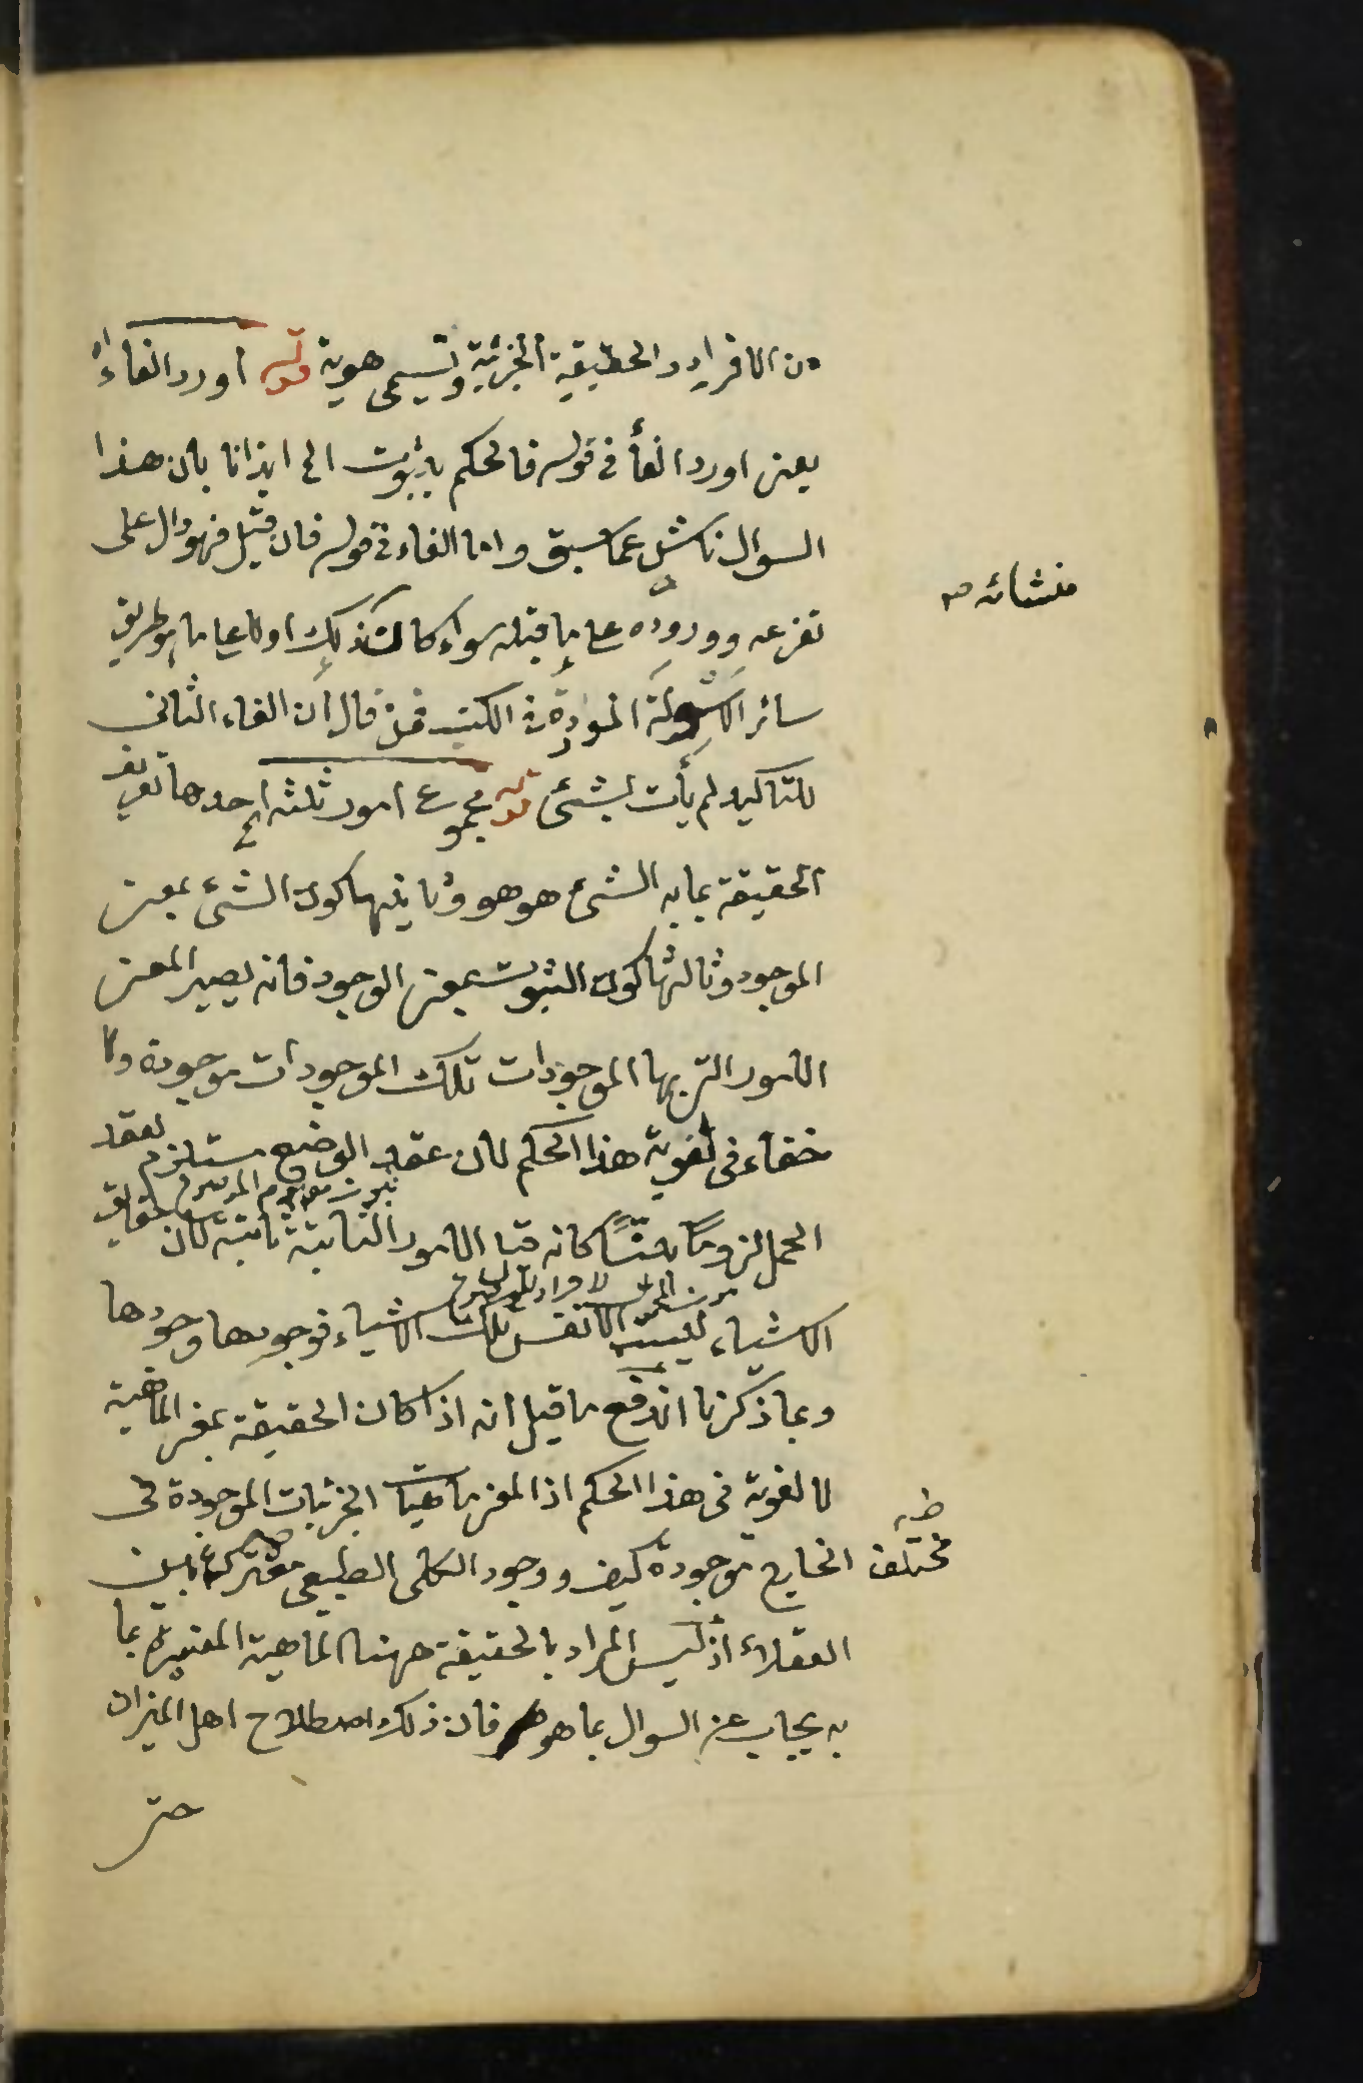 من الافراد والحقيقة الجزئية وتسمى هوية قوله اورد الفاء اه
يعنى اورد الفأ فى قوله فالحكم بثبوت الخ ايذانا بان هذا
السوال ناش عما سبق واما الفاء فى قوله فان قيل فهو دال على
منشائه صح
تفرعه ووروده على ما قبله سواء كان كذلك اولا على ما هو طريق
سائر الاسولة الموردة فى الكتب فمن قال ان الفاء الثانى
للتاكيد لم يأت بشئ قوله مجموع امور ثلثة الخ احدها تعريف
الحقيقة بما به الشئ هو هو وثانيها كون الشئ بمعنى
الموجود وثالثها كون الثبوت بمعنى الوجود فانه يصير المعنى
الامور التى بها الموجودات تلك الموجودات موجودة ولا
خفاء فى لغوية هذا الحكم لان عقد الوضع مستلزم لعقد
الحمل لزوما بينا كانه قيل الامور الثابتة ثابتة لان حقايق
الاشياء ليست الا نفس تلك الاشياء فوجودها وجودها
وبما ذكرنا اندفع ما قيل انه اذا كان الحقيقة بمعنى الماهية
لا لغوية فى هذا الحكم اذ المعنى ماهيات الجزئيات الموجودة فى
الخارج موجودة كيف ووجود الكلى الطبيعى معترك بين
مختلف
العقلاء اذ ليس المراد بالحقيقة ههنا الماهية المفسرة بما
به يجاب عن السوال بما هو فان ذلك اصطلاح اهل الميزان
حتى